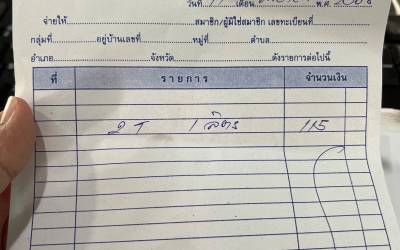 วันที่ เดือน พ.ศ.
จ่ายให้ สมาชิก/ผู้มิใช่สมาชิก เลขทะเบียนที่
กลุ่มที่ อยู่บ้านเลขที่ หมู่ที่ ตำบล
อำเภอ จังหวัด ดังรายการต่อไปนี้
ที่ รายการ จำนวนเงิน
2 T 1 ลิตร 115